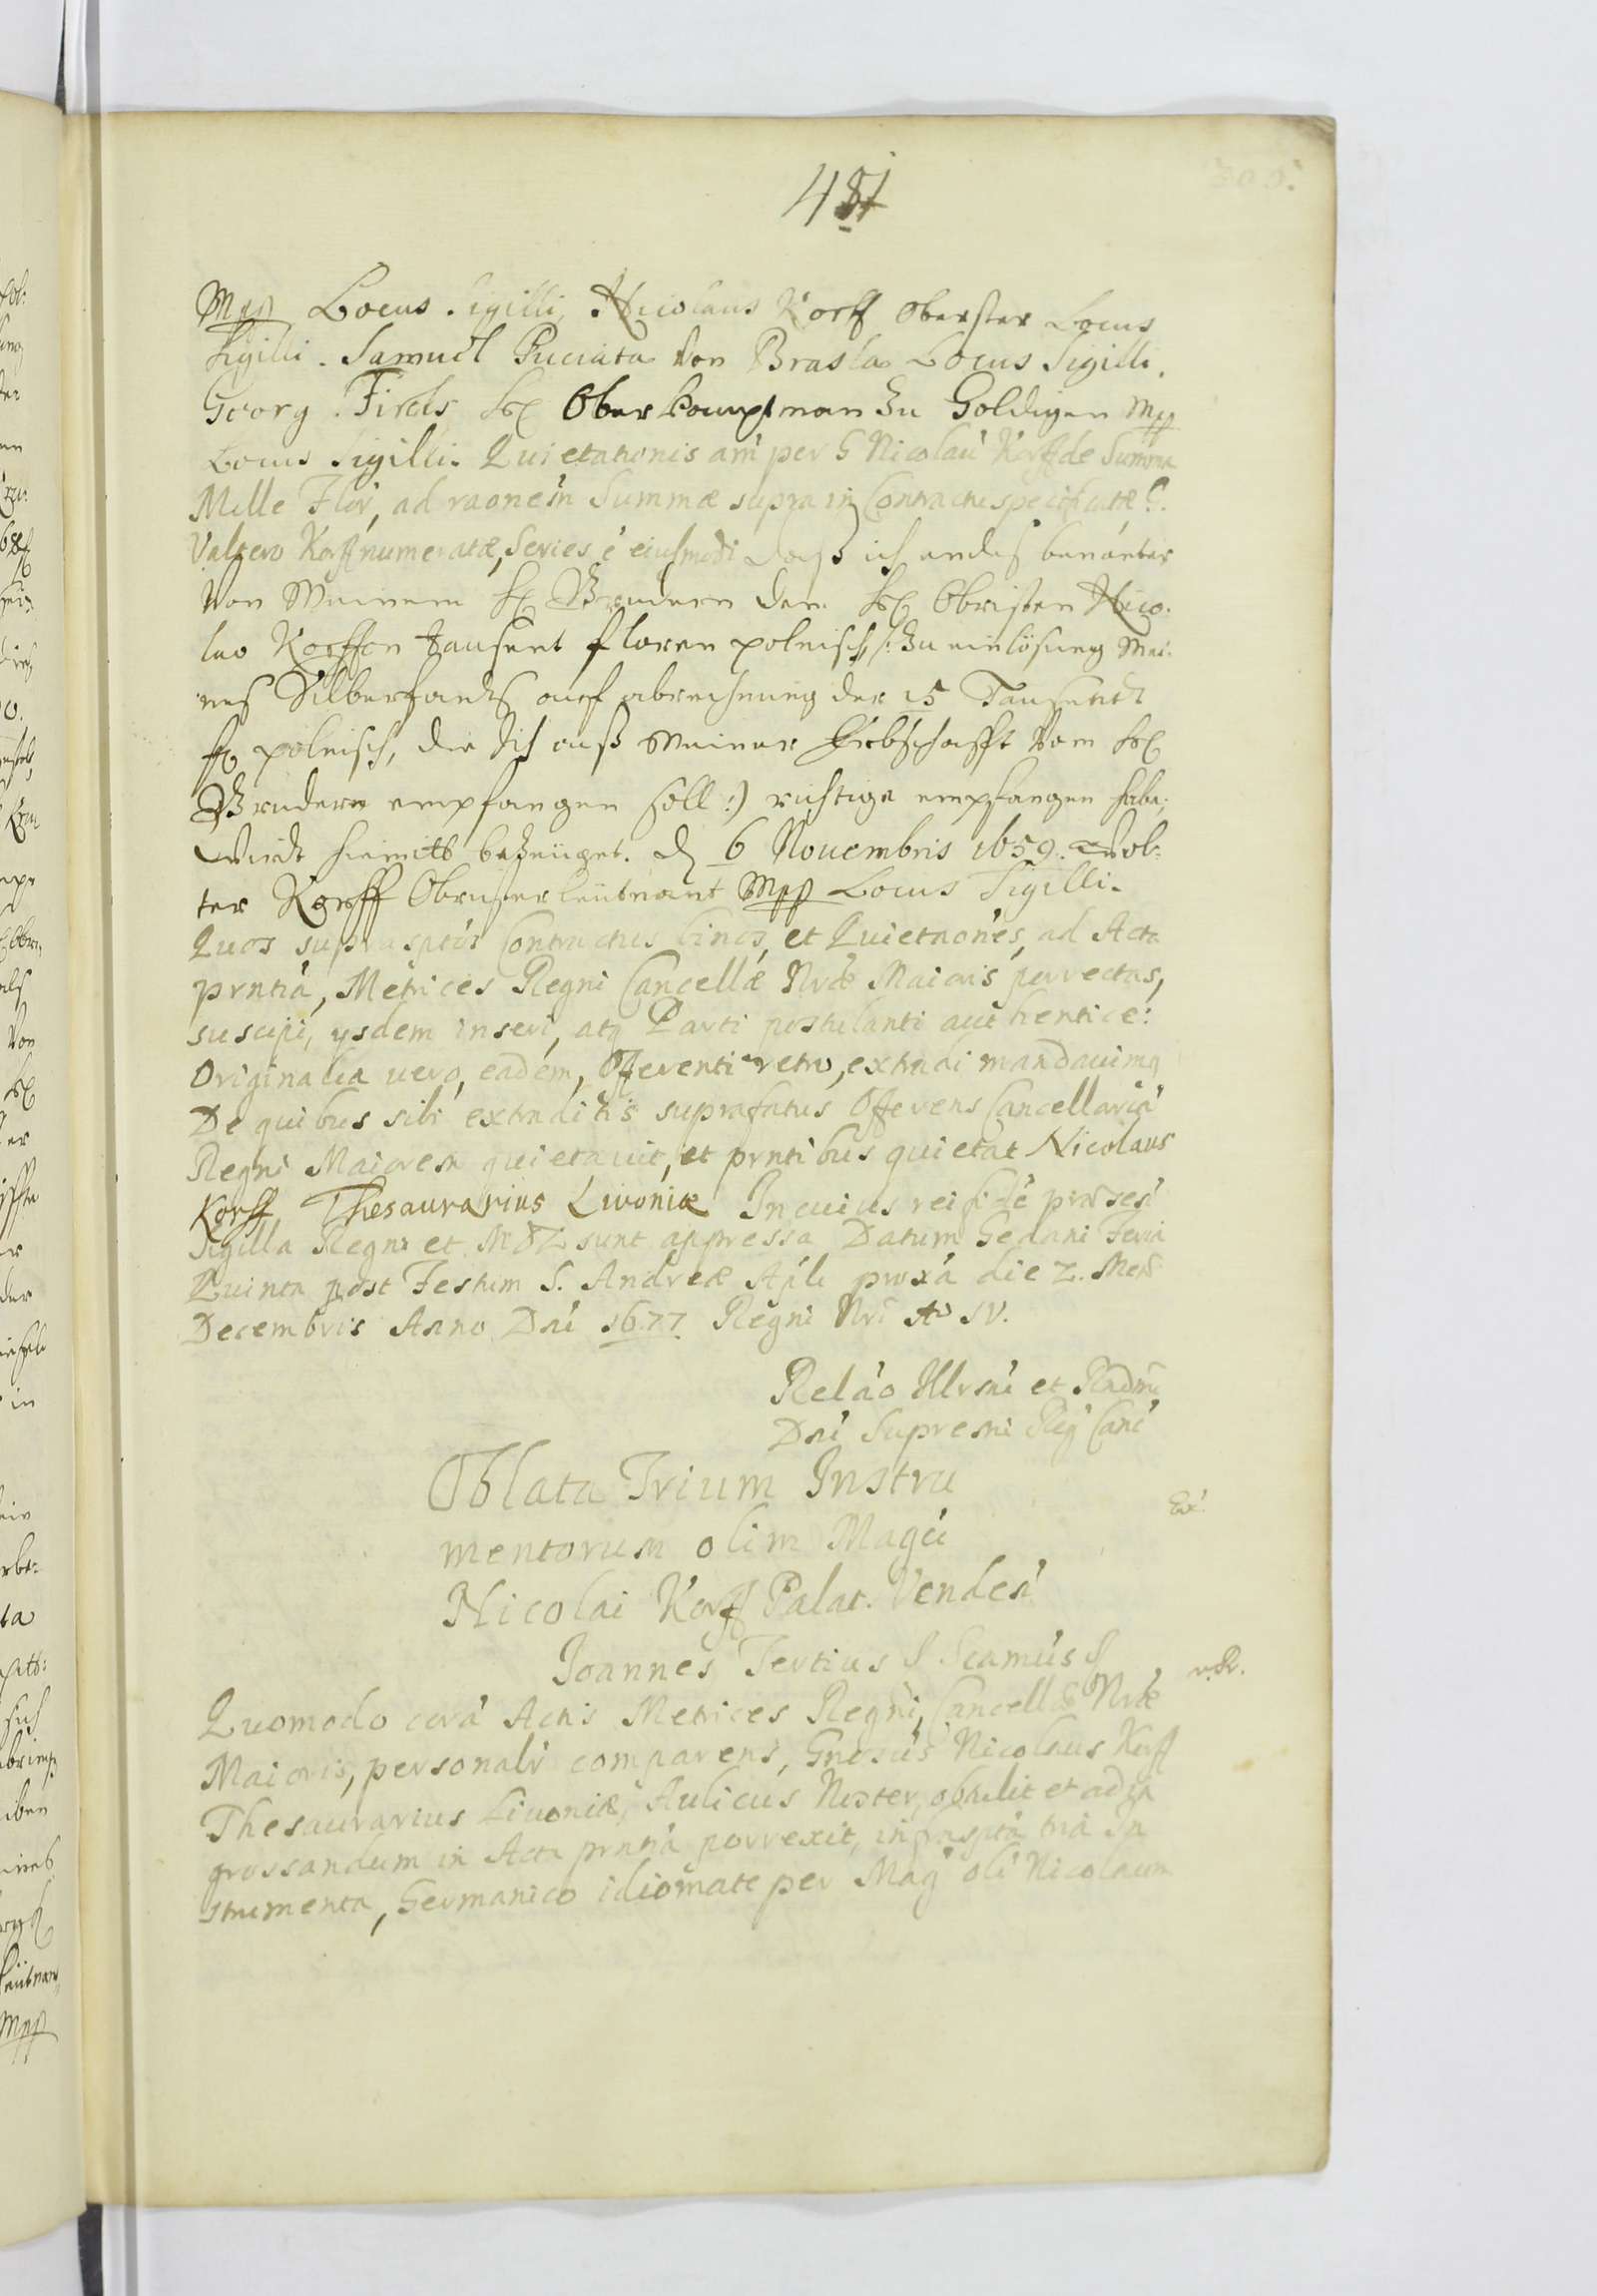 481
Mpp Locus Sigilli, Nicolaus Korff Oberster Locus
Sigilli. Samuel Puciata von Brasla Locus Sigilli.
Georg Fircks Oberhauptman Zu Goldigen Mpp
Locus Sigilli. Quietationis am̃ per G Nicolaũ Korff de Summa
Mille Flor, ad raonem Summæ supra in Contractu specificatæ G.
Valtero Korff numeratæ, Series ẽ eiusmodi daß ich endes benanter
Von Meinem H Brudern dem H Obristen Nico-
lao Korffen tausent floren polnisch /: Zu einlösung Mei-
nes Silberpfands auf abrechnung der 15 Tausendt
fl polnisch, die Ich auß Meiner Erbschafft Vom H
Brudern empfangen soll :) richtige empfangen habe,
wirdt hiemitt bezeüget. d 6 Nouembris 1659. Wol-
ter Korff Obrister leütnant Mpp Locus Sigilli.
Quos suprasptos Contractus binos, et Quietaones, ad Acta
prntia, Metrices Regni Cancellæ Nræ Maioris porrectas,
suscipi, ysdem inseri, atq Parti postulanti authentice:
Originalia uero, eadem, Offerenti retro, extradi mandauimq
De quibus sibi extraditis suprafatus Offerens Cancellariã
Regni Maiorem quietauit, et prntibus quietat Nicolaus
Korff Thesaurarius Livoniæ In cuius rei fidẽ prnses
Sigilla Regni et MDL sunt appressa Datum Gedani Feria
Quinta post Festum S. Andreæ Apli proxa die 2. Mens
Decembris Anno Dni 1677 Regni Nri Ao IV.
Relão Illrsmi et Rndmi
Dni Supremi Reg Canc
Oblata Trium Instru
mentorum olim Magci
Nicolai Korff Palat. Venden
Ex:
Joannes Tertius S Scamus S
Quomodo corã Actis Metrices Regni, Cancellæ Nræ
Maioris, personalr comparens, Gnosus Nicolaus Korff
Thesaurarius Liuoniæ, Aulicus Noster, obtulit et ad in
grossandum in Acta prntia porrexit, infraspta tria In
strumenta, Germanico idiomate per Mag oli Nicolaum